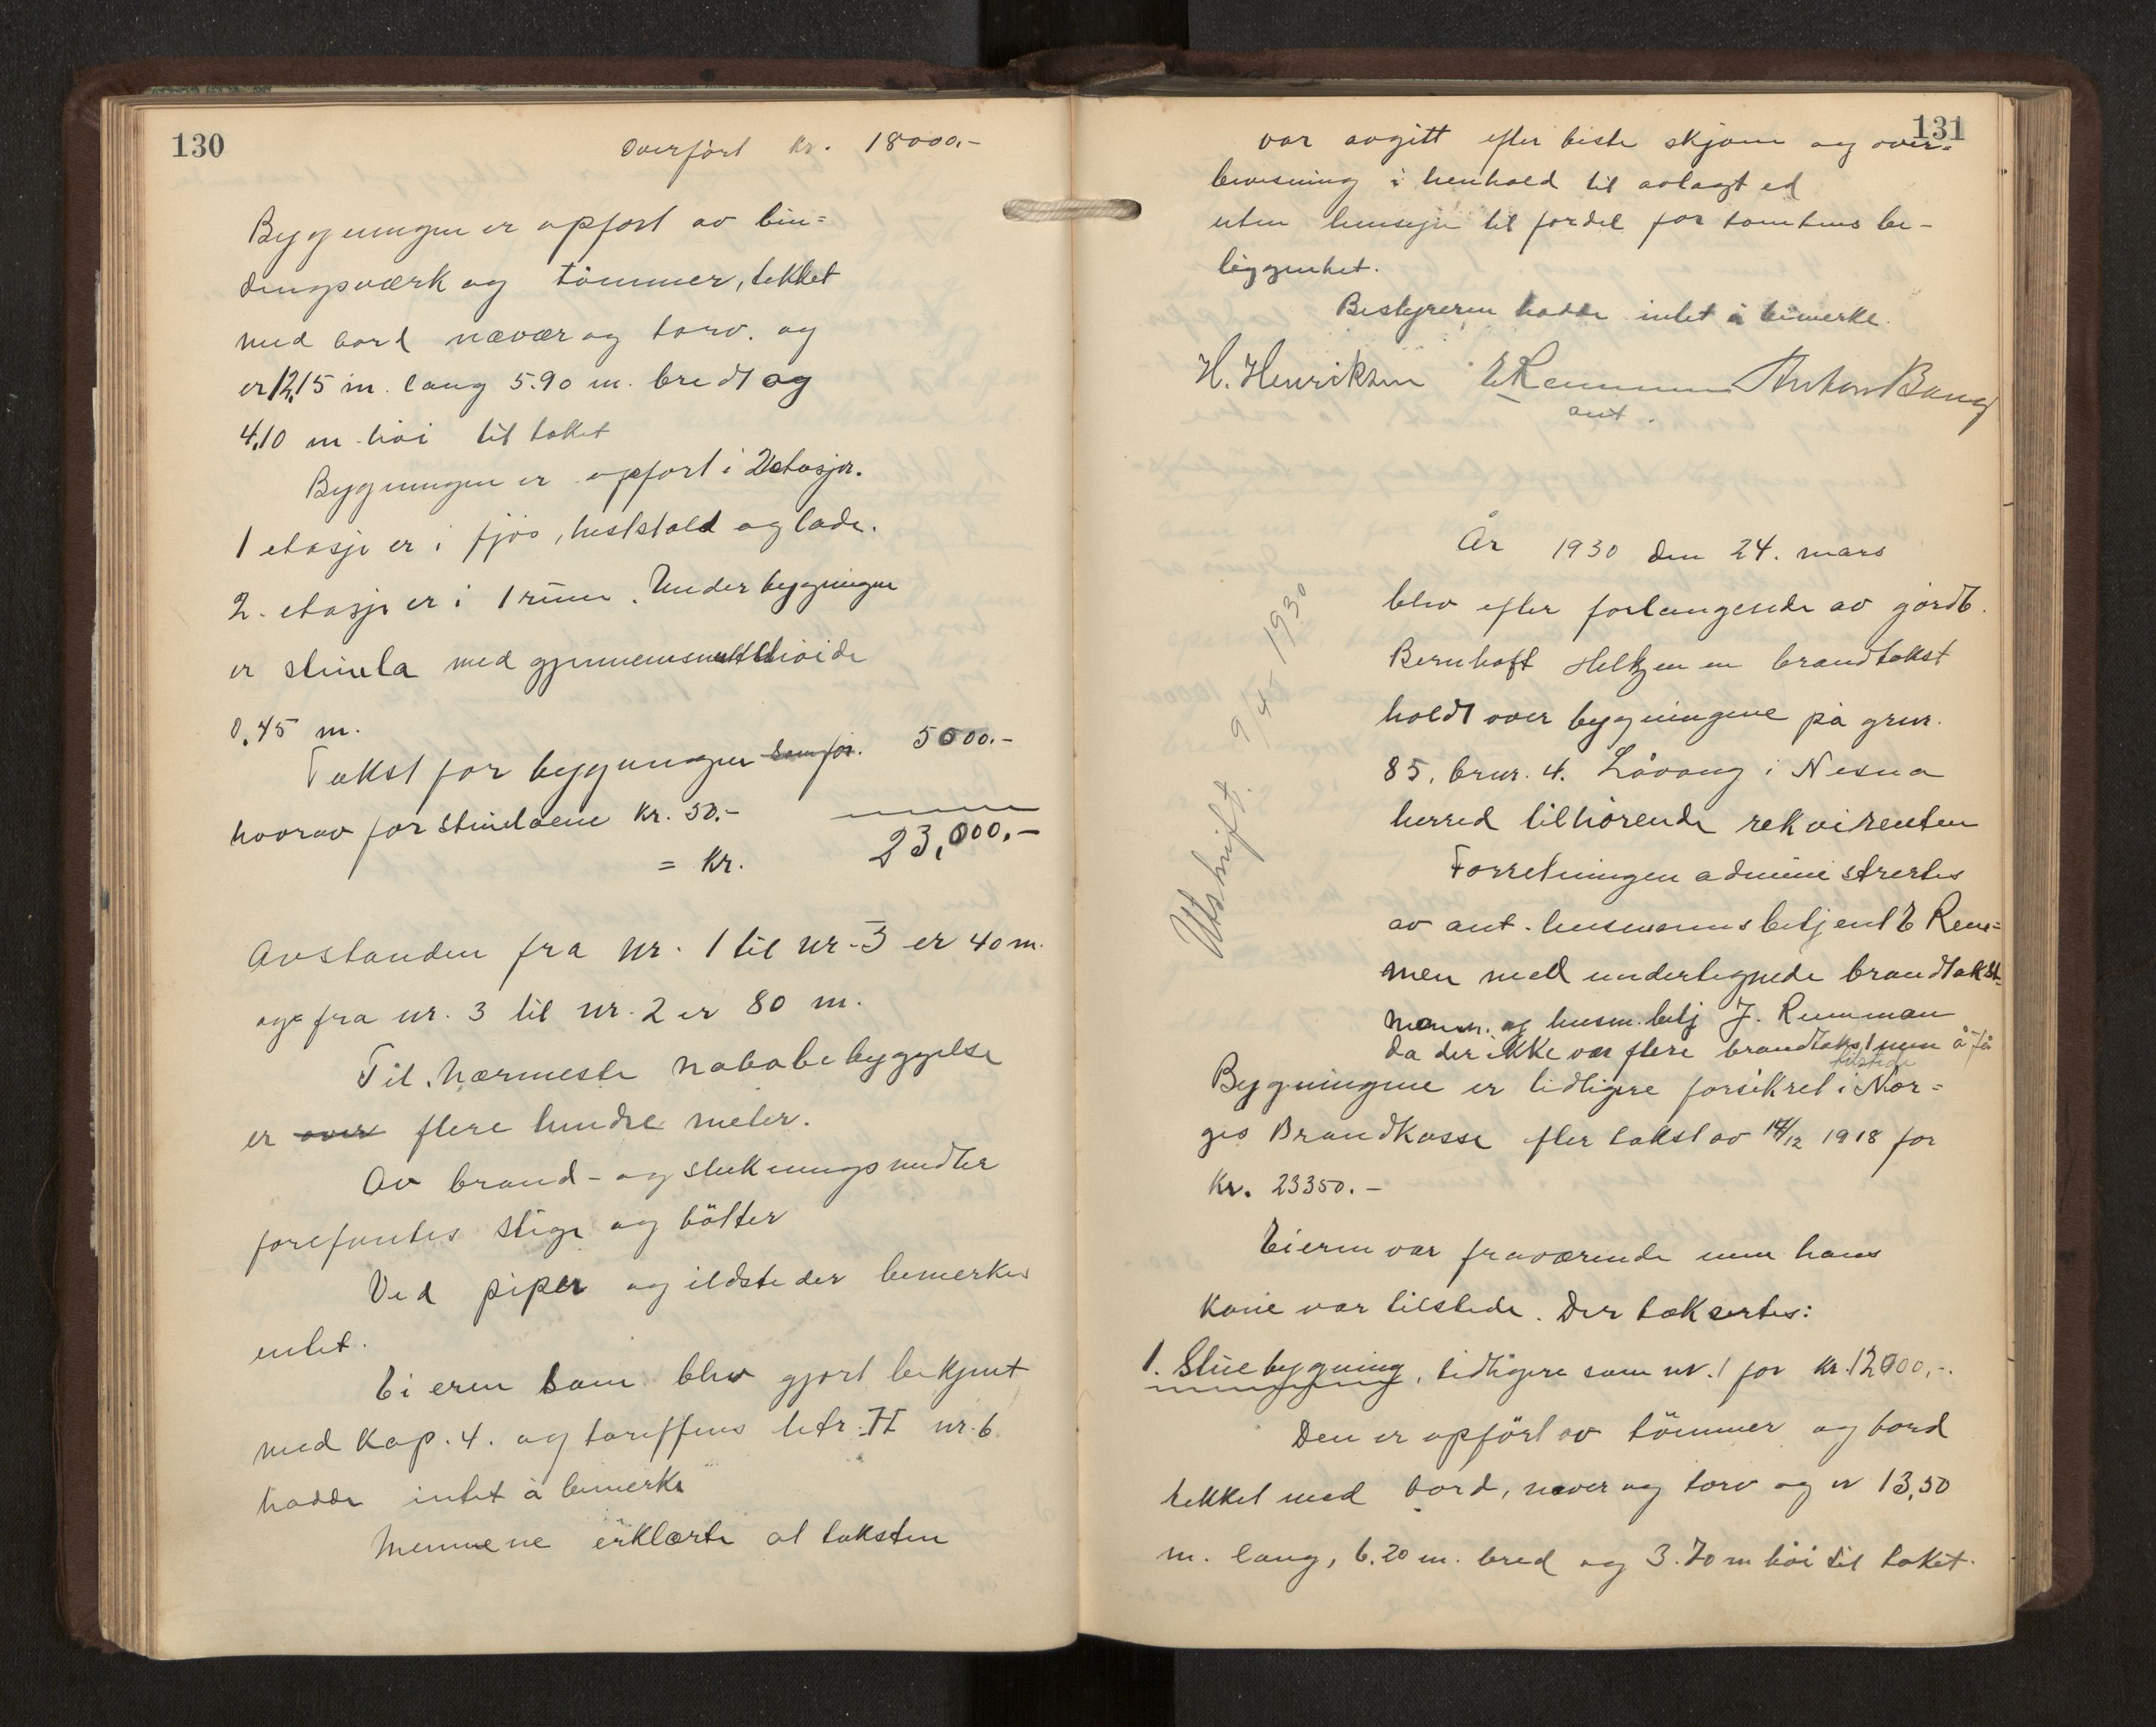 130
Overført kr. 18000.-
Bygningen er opført av bin=
dingsværk og tömmer, tekket
med bord næver og torv. og
er 12,15 m. lang 5.90 m. bredt og
4,10 m høi til taket
Bygningen er opført i 2 etasjer.
1 etasje er i fjös, heststald og lade.
2. etasje er i 1 rum. Under bygningen
er stimla med gjennemsnittshöide
0,45 m.
Takst for bygningen som for. 5000.-
hvorav for stimlaene kr. 50.-
= kr. 23,000.-
Avstanden fra nr. 1 til nr. 3 er 40 m.
og fra nr. 3 til nr. 2 er 80 m.
Til nærmeste nabobebyggelse
er over flere hundre meter.
Av brand- og slukningsmidler
forefantes stige og bötter
Ved piper og ildsteder bemerkes
intet.
Eieren som blev gjort bekjent
med Kap. 4. og tariffens litr. H nr. 6
hadde intet å bemerke
Mennene erklærte at taksten
131
var avgitt efter beste skjønn og over=
bevisning i henhold til avlagt ed
uten hensyn til fordel for tomtens be-
liggenhet.
Bestyreren hadde intet å bemerke.
H. Henriksen E Remmen Anton Bang
ant.
År 1930 den 24. mars
blev efter forlangende av gårdb.
Bernhoft Heltzen en brandtakst
holdt over bygningene på grnr.
85, brnr. 4. Låvong i Nesna
herred tilhörende rekvirenten
Forretningen administrertes
av ant. lensmannsbetjent E Rem=
men med undertegnede brandtakst=
mann. og lensm. betj J. Remman
da der ikke var flere brandtakstmenn å få
tilstede
Bygningene er tidligere forsikret i Nor=
ges Brandkasse efter takst av 14/12 1918 for
kr. 23350.-
Eieren var fraværende men hans
kone var tilstede. Der taksertes:
1. Stuebygning, tidligere som nr. 1 for kr. 12000,-.
Den er opført av tömmer og bord
tekket med bord, never og torv og er 13,50
m. lang, 6.20 m. bred og 3.70 m höi til taket.
Utskrift. 9/45 1930